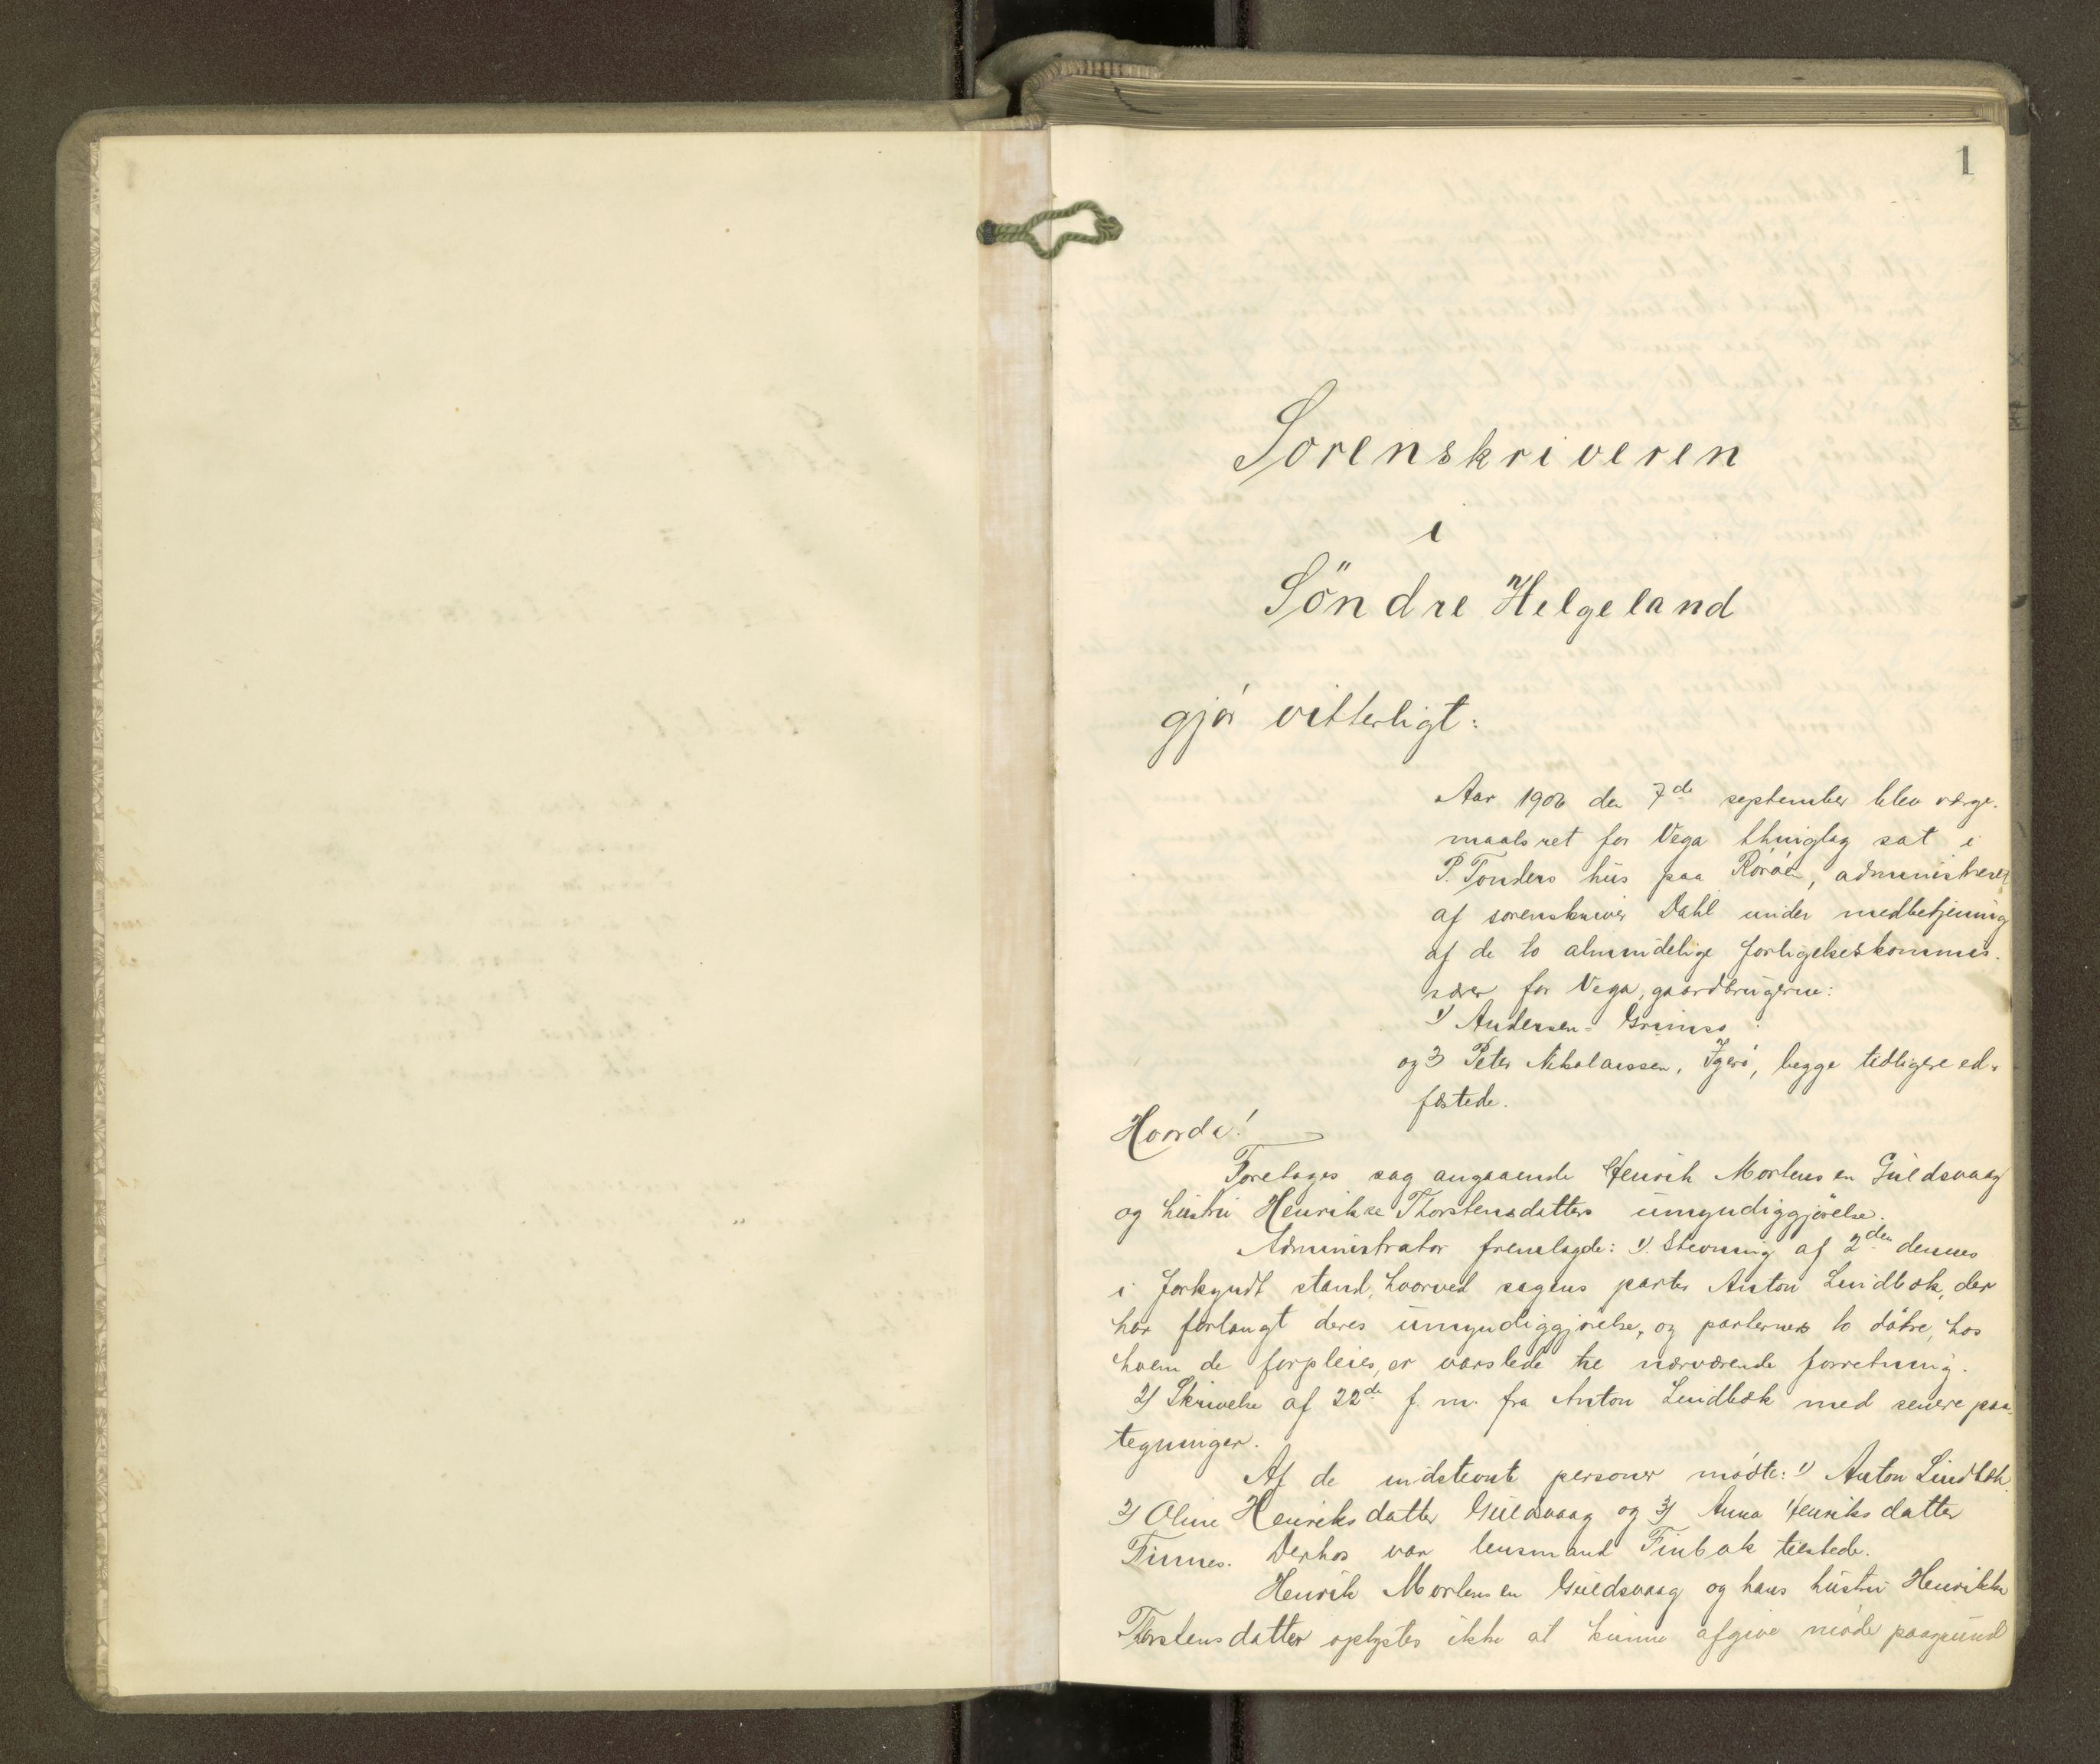 1
Sorenskriveren
i
Söndre Helgeland
gjör vitterligt:
Aar 1906 den 7de september blev værge-
maalsret for Vega thinglag sat i
P. Tonders hus paa Röröen, administreret
af sorenskriver Dahl under medbetjening
af de to almindelige forligelseskommis-
særer for Vega, gaardbrugerne:
1) Andersen- Grimsö
og 2) Peter Nikolaissen, Igerö, begge tidligere ed-
fæstede.
Hvorda!
Foretages sag angaaende Henrik Mortensen Guldsvaag
og hustru Henrikke Thorstensdatters umyndiggjörelse.
Administrator fremlagde: 1). Stevning af 2den dennes
i forkyndt stand, hvorved sagens parter Anton Lindbæk, der
har forlangt deres umyndiggjörelse, og parternes to döttre, hos
hvem de forpleies, er varslede til nærværende forretning.
2) Skrivelse af 22de f. m. fra Anton Lindbæk med senere paa-
tegninger.
Af de indstevnte personer mödte: 1) Anton Lindbæk.
2) Oline Henriksdatter Guldsvaag og 3) Anna Henriksdatter
Finnes. Derhos var lensmand Finbak tilstede.
Henrik Mortensen Guldsvaag og hans hustru Henrikke
Thorstensdatter oplystes ikke at kunne afgive möde paagrund